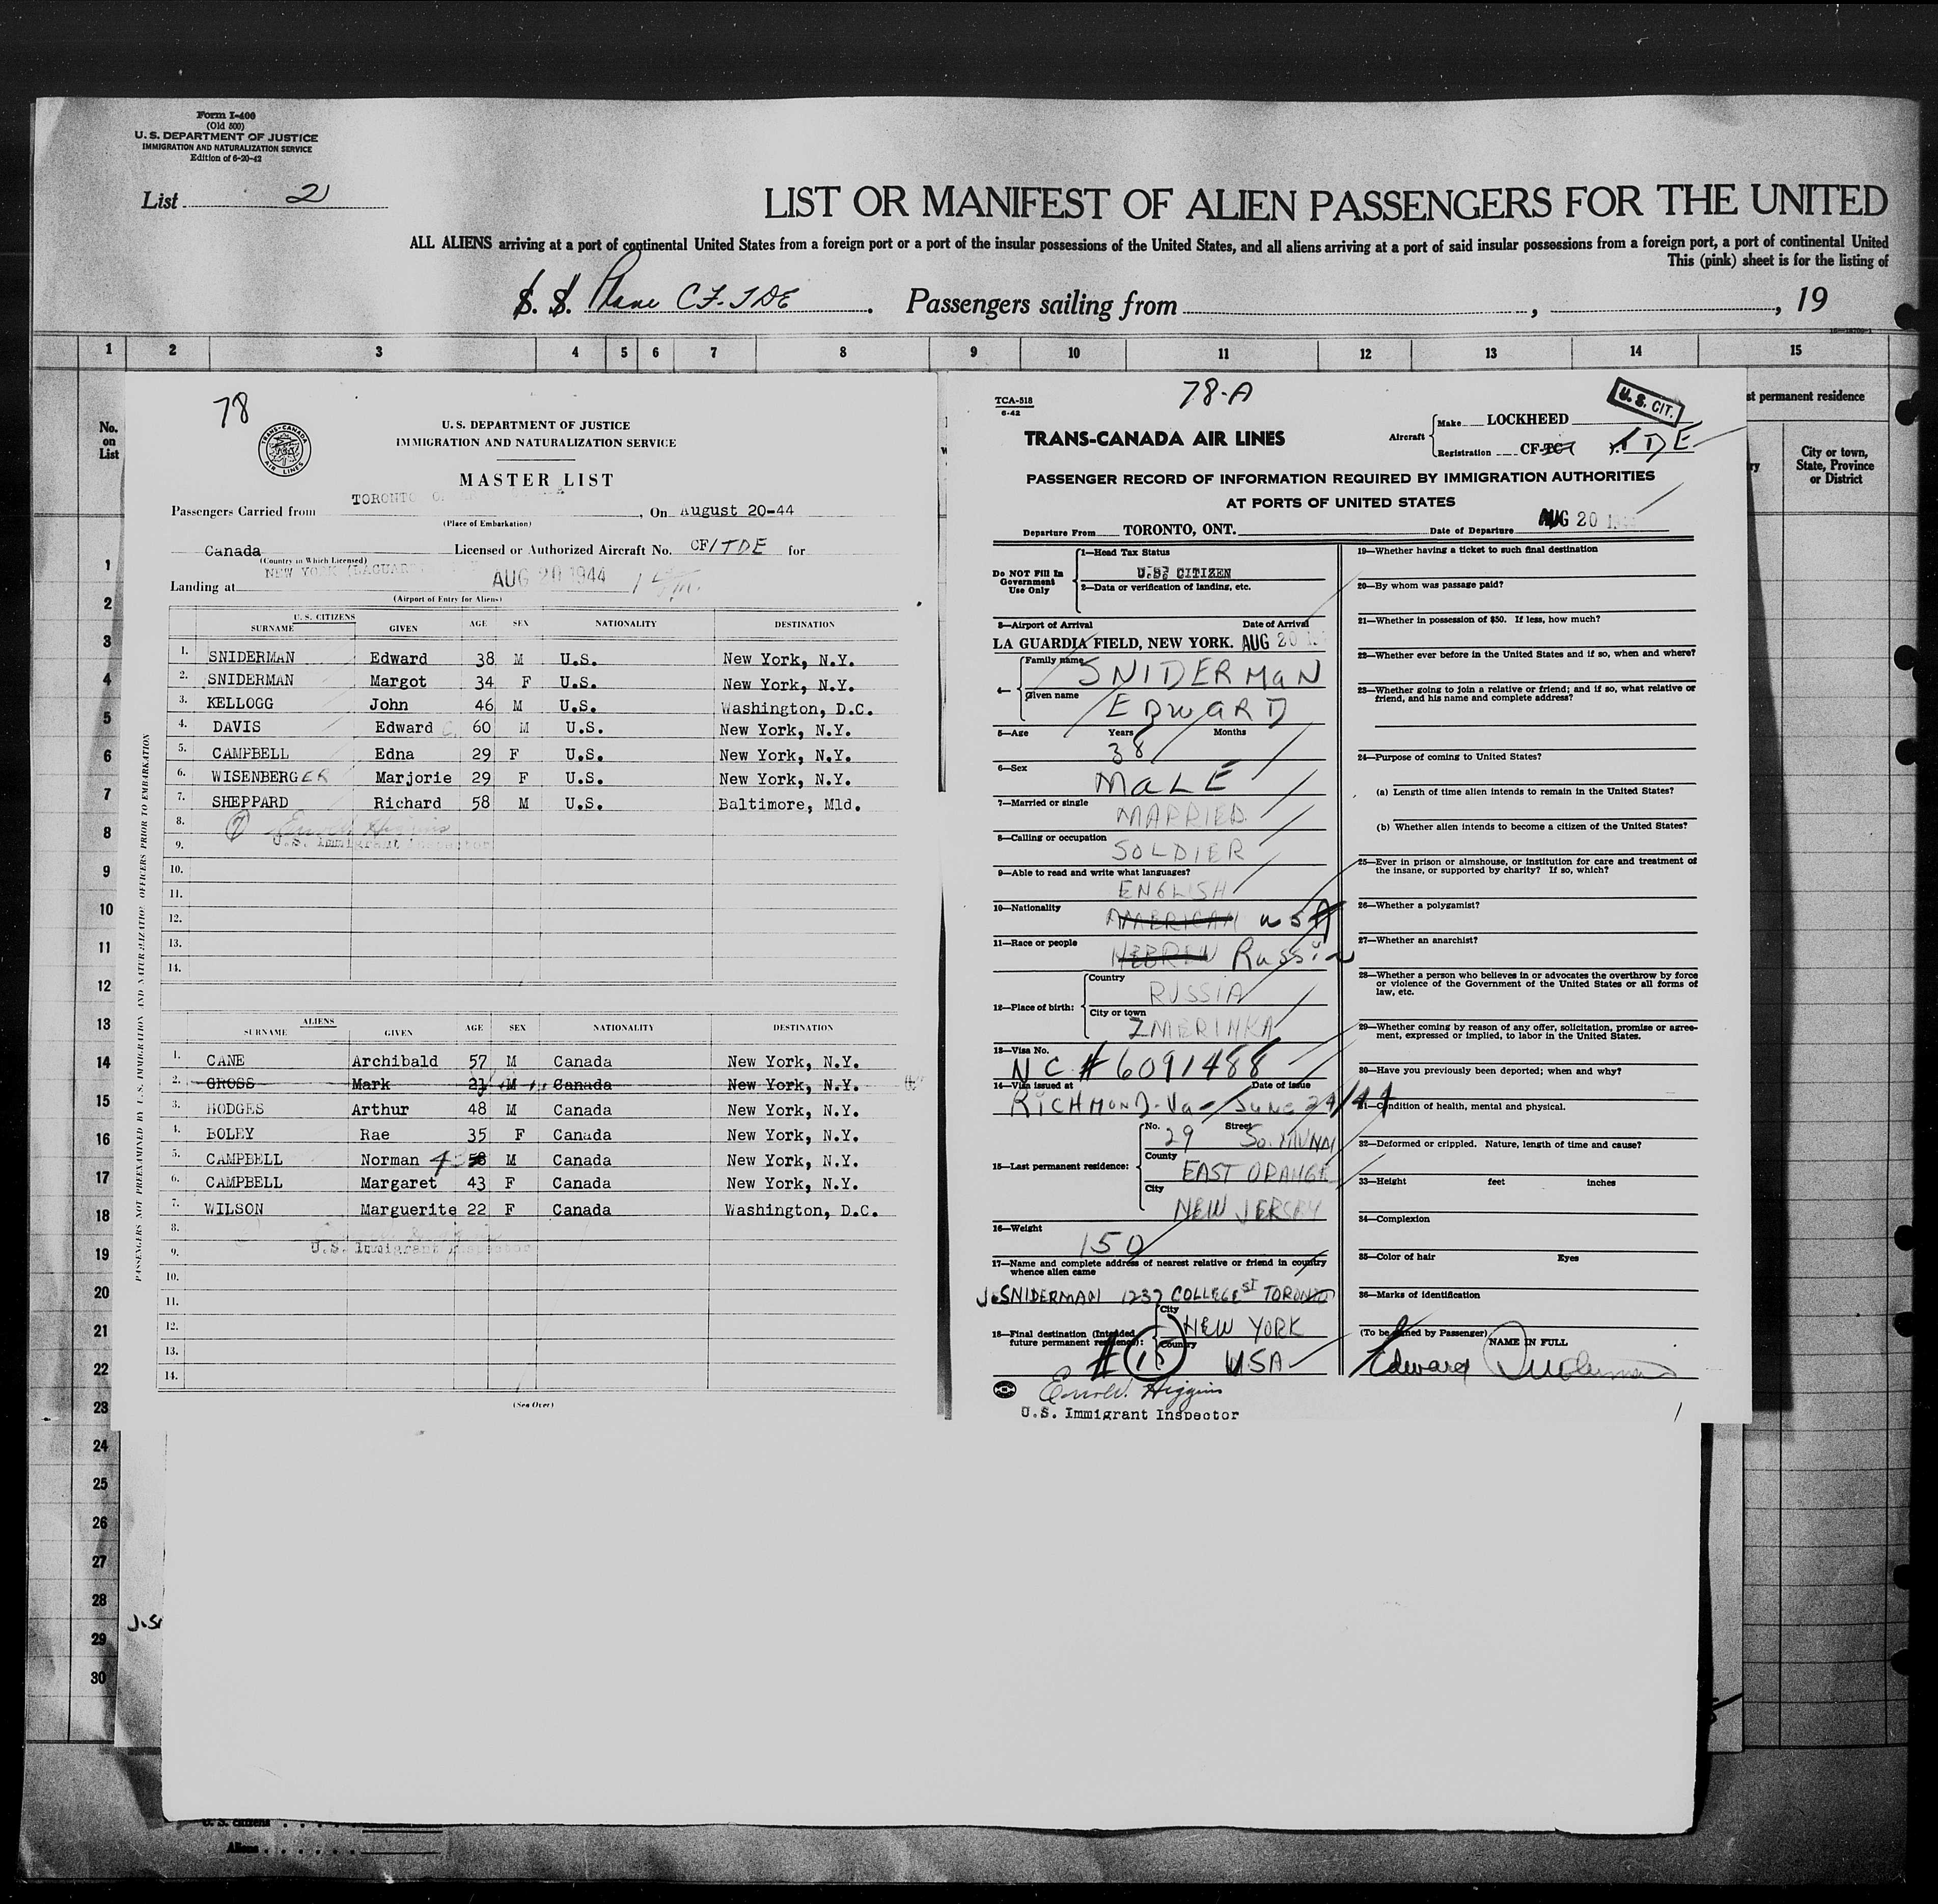 Form I-400
(Old 500)
U. S. DEPARTMENT OF JUSTICE
IMMIGRATION AND NATURALIZATION SERVICE
Edition of 6-20-42
List 2
LIST OR MANIFEST OF ALIEN PASSENGERS FOR THE UNITED
ALL ALIENS arriving at a port of continental United States from a foreign port or a port of the insular possessions of the United States, and all aliens arriving at a port of said insular possessions from a foreign port, a port of continental United
This (pink) sheet is for the listing of
S. S. Plane CF-TDE. Passengers sailing from , , 19
1 2 3 4 5 6 7 8 9 10 11 12 13 14 15
No. on List
st permanent residence
City or town, State, Province or District
1
2
3
4
5
6
7
8
9
10
11
12
13
14
15
16
17
18
19
20
21
22
23
24
25
26
27
28
29
30
78
TRANS-CANADA AIR LINES
U. S. DEPARTMENT OF JUSTICE
IMMIGRATION AND NATURALIZATION SERVICE
MASTER LIST
Passengers Carried from TORONTO , On August 20-44
(Place of Embarkation)
Canada Licensed or Authorized Aircraft No. CF/TDE for
(Country in Which Licensed)
Landing at NEW YORK AUG 20 1944
(Airport of Entry for Aliens)
U. S. CITIZENS
SURNAME GIVEN AGE SEX NATIONALITY DESTINATION
1. SNIDERMAN Edward 38 M U.S. New York, N.Y.
2. SNIDERMAN Margot 34 F U.S. New York, N.Y.
3. KELLOGG John 46 M U.S. Washington, D.C.
4. DAVIS Edward C. 60 M U.S. New York, N.Y.
5. CAMPBELL Edna 29 F U.S. New York, N.Y.
6. WISENBERGER Marjorie 29 F U.S. New York, N.Y.
7. SHEPPARD Richard 58 M U.S. Baltimore, Mld.
8. (7) Higgins
9. U.S. Immigrant Inspector
10.
11.
12.
13.
14.
ALIENS
SURNAME GIVEN AGE SEX NATIONALITY DESTINATION
1. CANE Archibald 57 M Canada New York, N.Y.
2. GROSS Mark 21 M Canada New York, N.Y.
3. HODGES Arthur 48 M Canada New York, N.Y.
4. BOLEY Rae 35 F Canada New York, N.Y.
5. CAMPBELL Norman 58 M Canada New York, N.Y.
6. CAMPBELL Margaret 43 F Canada New York, N.Y.
7. WILSON Marguerite 22 F Canada Washington, D.C.
8.
9. U.S. Immigrant Inspector
10.
11.
12.
13.
14.
(See Over)
PASSENGERS NOT PREEXAMINED BY U. S. IMMIGRATION AND NATURALIZATION OFFICERS PRIOR TO EMBARKATION
TCA-518
6-42
78-A
U. S. CIT.
TRANS-CANADA AIR LINES
Aircraft Make LOCKHEED
Registration CF-TC TDE
PASSENGER RECORD OF INFORMATION REQUIRED BY IMMIGRATION AUTHORITIES
AT PORTS OF UNITED STATES
Departure From TORONTO, ONT. Date of Departure AUG 20
Do NOT Fill In Government Use Only
1—Head Tax Status
U.S. CITIZEN
2—Data or verification of landing, etc.
3—Airport of Arrival Date of Arrival
LA GUARDIA FIELD, NEW YORK. AUG 20
4— Family name SNIDERMAN
Given name EDWARD
5—Age Years Months
38
6—Sex MALE
7—Married or single MARRIED
8—Calling or occupation SOLDIER
9—Able to read and write what languages?
ENGLISH
10—Nationality AMERICAN USA
11—Race or people HEBREW Russian
12—Place of birth: Country RUSSIA
City or town ZMERINKA
13—Visa No. NC # 6091488
14—Visa issued at Date of issue
RICHMOND-Va- June 29/44
15—Last permanent residence: No. 29 Street So. MUNN
County EAST ORANGE
City NEW JERSEY
16—Weight 150
17—Name and complete address of nearest relative or friend in country
whence alien came
J. SNIDERMAN 1237 COLLEGE ST TORONTO
18—Final destination (Intended future permanent residence): City NEW YORK
Country USA
# 15
Higgins
U.S. Immigrant Inspector
19—Whether having a ticket to such final destination
20—By whom was passage paid?
21—Whether in possession of $50. If less, how much?
22—Whether ever before in the United States and if so, when and where?
23—Whether going to join a relative or friend; and if so, what relative or
friend, and his name and complete address?
24—Purpose of coming to United States?
(a) Length of time alien intends to remain in the United States?
(b) Whether alien intends to become a citizen of the United States?
25—Ever in prison or almshouse, or institution for care and treatment of
the insane, or supported by charity? If so, which?
26—Whether a polygamist?
27—Whether an anarchist?
28—Whether a person who believes in or advocates the overthrow by force
or violence of the Government of the United States or all forms of
law, etc.
29—Whether coming by reason of any offer, solicitation, promise or agree-
ment, expressed or implied, to labor in the United States.
30—Have you previously been deported; when and why?
31—Condition of health, mental and physical.
32—Deformed or crippled. Nature, length of time and cause?
33—Height feet inches
34—Complexion
35—Color of hair Eyes
36—Marks of identification
(To be signed by Passenger) NAME IN FULL
Edward Sniderman
J.S
U. S. citizens
Aliens